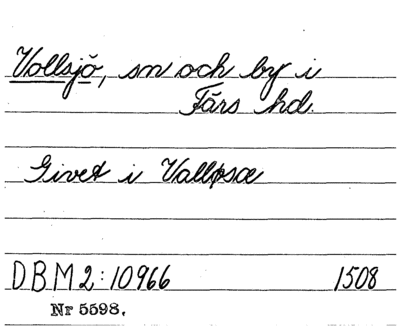 Vollsjö, sn och by i
Färs hd.
Givet i Vallpsæ
DBM2:10966 1508
Nr 5598.